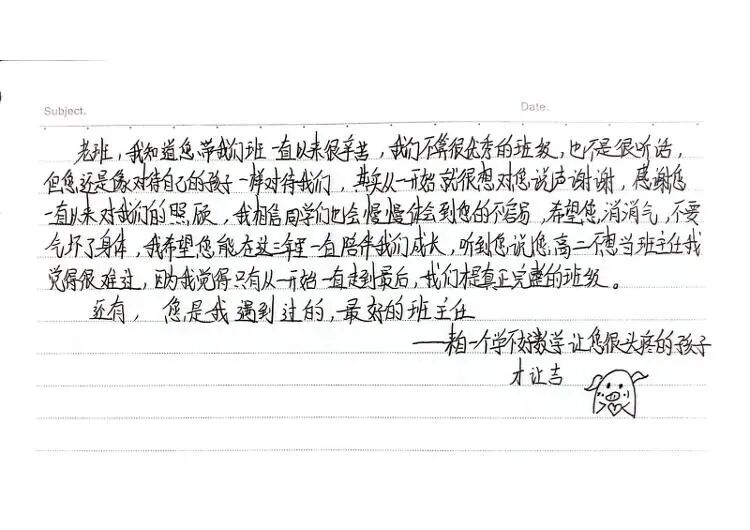 Subject.
Date.
老班，我知道您带我们班一直以来很辛苦，我们不算很优秀的班级，也不是很听话，
但您还是像对待自己的孩子一样对待我们，其实从一开始就很想对您说声谢谢，感谢您
一直以来对我们的照顾，我相信同学们也会慢慢体会到您的不容易，希望您消消气，不要
气坏了身体，我希望您能在这三年里一直陪伴我们成长，听到您说您高二不想当班主任我
觉得很难过，因为我觉得只有从一开始一直走到最后，我们才是真正完整的班级。
还有，您是我遇到过的，最好的班主任
——来自一个学不好数学让您很头疼的孩子
才让吉